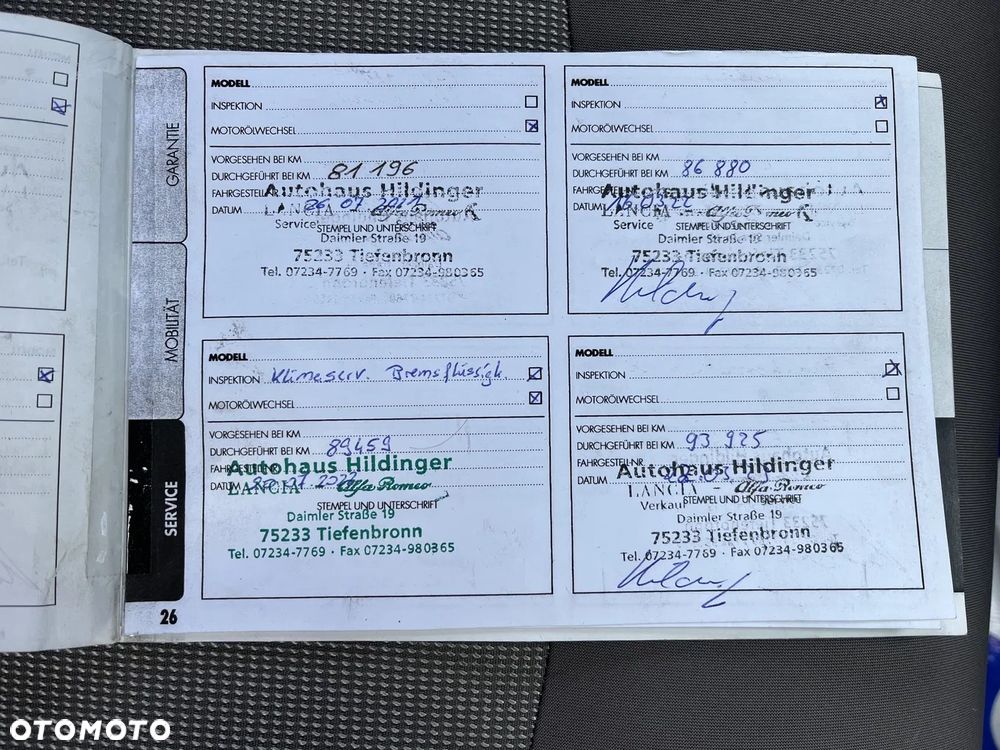 GARANTIE
MOBILITÄT
SERVICE
26
MODELL
INSPEKTION
MOTORÖLWECHSEL
VORGESEHEN BEI KM
DURCHGEFÜHRT BEI KM 81 196
FAHRGESTELL
Autohaus Hildinger
DATUM 26 07 2021
LANCIA - Alfa Romeo
Service
STEMPEL UND UNTERSCHRIFT
Daimler Straße 19
75233 Tiefenbronn
Tel. 07234-7769 · Fax 07234-980365
MODELL
INSPEKTION
MOTORÖLWECHSEL
VORGESEHEN BEI KM
DURCHGEFÜHRT BEI KM 86 880
Autohaus Hildinger
DATUM
LANCIA - Alfa Romeo
Service
STEMPEL UND UNTERSCHRIFT
Daimler Straße 19
75233 Tiefenbronn
Tel. 07234-7769 · Fax 07234-980365
MODELL
INSPEKTION Klimaserv. Bremsflüssigk.
MOTORÖLWECHSEL
VORGESEHEN BEI KM
DURCHGEFÜHRT BEI KM 89459
FAHRGESTELL-NR.
Autohaus Hildinger
DATUM
LANCIA - Alfa Romeo
STEMPEL UND UNTERSCHRIFT
Daimler Straße 19
75233 Tiefenbronn
Tel. 07234-7769 · Fax 07234-980365
MODELL
INSPEKTION
MOTORÖLWECHSEL
VORGESEHEN BEI KM
DURCHGEFÜHRT BEI KM 93 925
FAHRGESTELL-NR.
Autohaus Hildinger
DATUM
LANCIA - Alfa Romeo
Verkauf
STEMPEL UND UNTERSCHRIFT
Daimler Straße 19
75233 Tiefenbronn
Tel. 07234-7769 · Fax 07234-980365
OTOMOTO